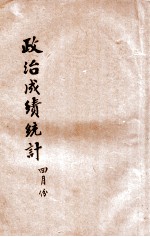 政治成績統計
四月份